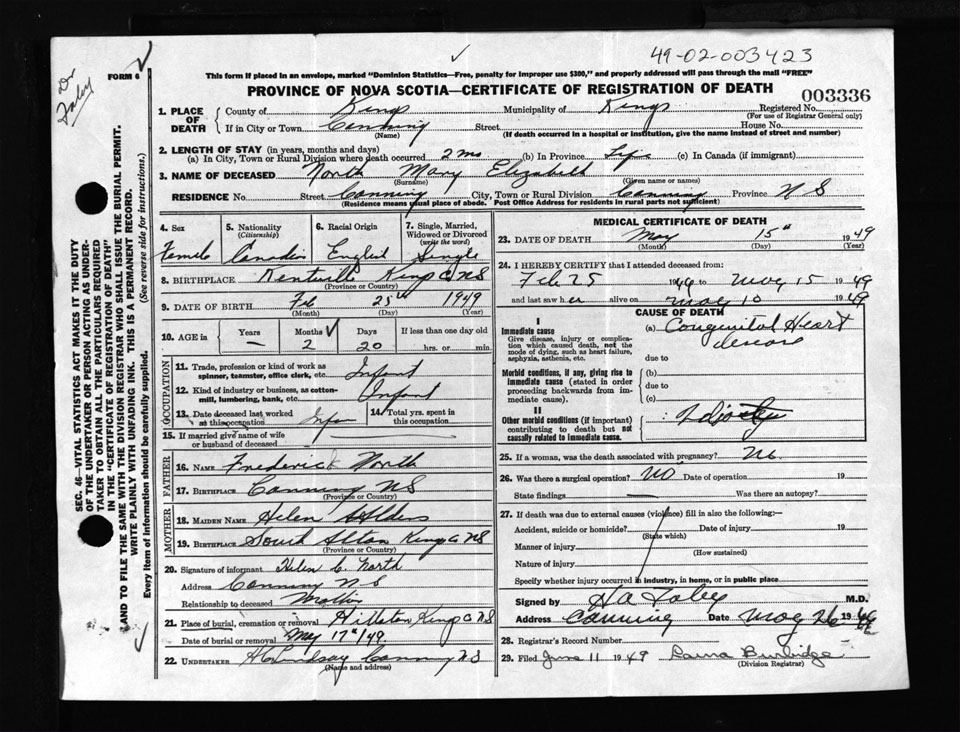 49-02-003423
Dr Foley
FORM 6
This form if placed in an envelope, marked "Dominion Statistics—Free, penalty for improper use $300," and properly addressed will pass through the mail "FREE"
PROVINCE OF NOVA SCOTIA—CERTIFICATE OF REGISTRATION OF DEATH
003336
1. PLACE OF DEATH
County of Kings Municipality of Kings Registered No.
(For use of Registrar General only)
If in City or Town Canning Street House No.
(Name) (If death occurred in a hospital or institution, give the name instead of street and number)
2. LENGTH OF STAY (in years, months and days)
(a) In City, Town or Rural Division where death occurred 2 mos (b) In Province Life (c) In Canada (if immigrant)
3. NAME OF DECEASED North Mary Elizabeth
(Surname) (Given name or names)
RESIDENCE No. Street Canning City, Town or Rural Division Canning Province N S
(Residence means usual place of abode. Post Office Address for residents in rural parts not sufficient)
4. Sex
Female
5. Nationality
(Citizenship)
Canadian
6. Racial Origin
English
7. Single, Married, Widowed or Divorced
(write the word)
Single
8. BIRTHPLACE Kentville Kings Co NS
(Province or Country)
9. DATE OF BIRTH Feb 25th 1949
(Month) (Day) (Year)
10. AGE in
Years Months Days If less than one day old
— 2 20 hrs. or min.
OCCUPATION
11. Trade, profession or kind of work as spinner, teamster, office clerk, etc. Infant
12. Kind of industry or business, as cotton-mill, lumbering, bank, etc. Infant
13. Date deceased last worked at this occupation
14. Total yrs. spent in this occupation
15. If married give name of wife or husband of deceased
FATHER
16. NAME Frederick North
17. BIRTHPLACE Canning NS
(Province or Country)
MOTHER
18. MAIDEN NAME Helen
19. BIRTHPLACE South Alton Kings Co NS
(Province or Country)
20. Signature of informant Helen C. North
Address Canning N S
Relationship to deceased Mother
21. Place of burial, cremation or removal Hillaton Kings Co NS
Date of burial or removal May 17th/49
22. UNDERTAKER H C Lindsay Canning NS
(Name and address)
MEDICAL CERTIFICATE OF DEATH
23. DATE OF DEATH May 15th 1949
(Month) (Day) (Year)
24. I HEREBY CERTIFY that I attended deceased from:
Feb 25 1949 to May 15 1949
and last saw her alive on May 10 1949
CAUSE OF DEATH
I
Immediate cause
Give disease, injury or complication which caused death, not the mode of dying, such as heart failure, asphyxia, asthenia, etc.
(a) Congenital Heart disease
due to
Morbid conditions, if any, giving rise to immediate cause (stated in order proceeding backwards from immediate cause).
(b)
due to
(c)
II
Other morbid conditions (if important) contributing to death but not causally related to immediate cause.
25. If a woman, was the death associated with pregnancy? No.
26. Was there a surgical operation? No Date of operation 19
State findings — Was there an autopsy?
27. If death was due to external causes (violence) fill in also the following:
Accident, suicide or homicide? Date of injury 19
(State which)
Manner of injury
(How sustained)
Nature of injury
Specify whether injury occurred in industry, in home, or in public place
Signed by H A Foley M.D.
Address Canning Date May 26 1949
28. Registrar's Record Number
29. Filed June 11 1949 Laura Burbidge
(Division Registrar)
SEC. 46—VITAL STATISTICS ACT MAKES IT THE DUTY
OF THE UNDERTAKER OR PERSON ACTING AS UNDER-
TAKER TO OBTAIN ALL THE PARTICULARS REQUIRED
IN THE "CERTIFICATE OF REGISTRATION OF DEATH"
AND TO FILE THE SAME WITH THE DIVISION REGISTRAR WHO SHALL ISSUE THE BURIAL PERMIT.
WRITE PLAINLY WITH UNFADING INK. THIS IS A PERMANENT RECORD.
Every item of information should be carefully supplied. (See reverse side for instructions.)